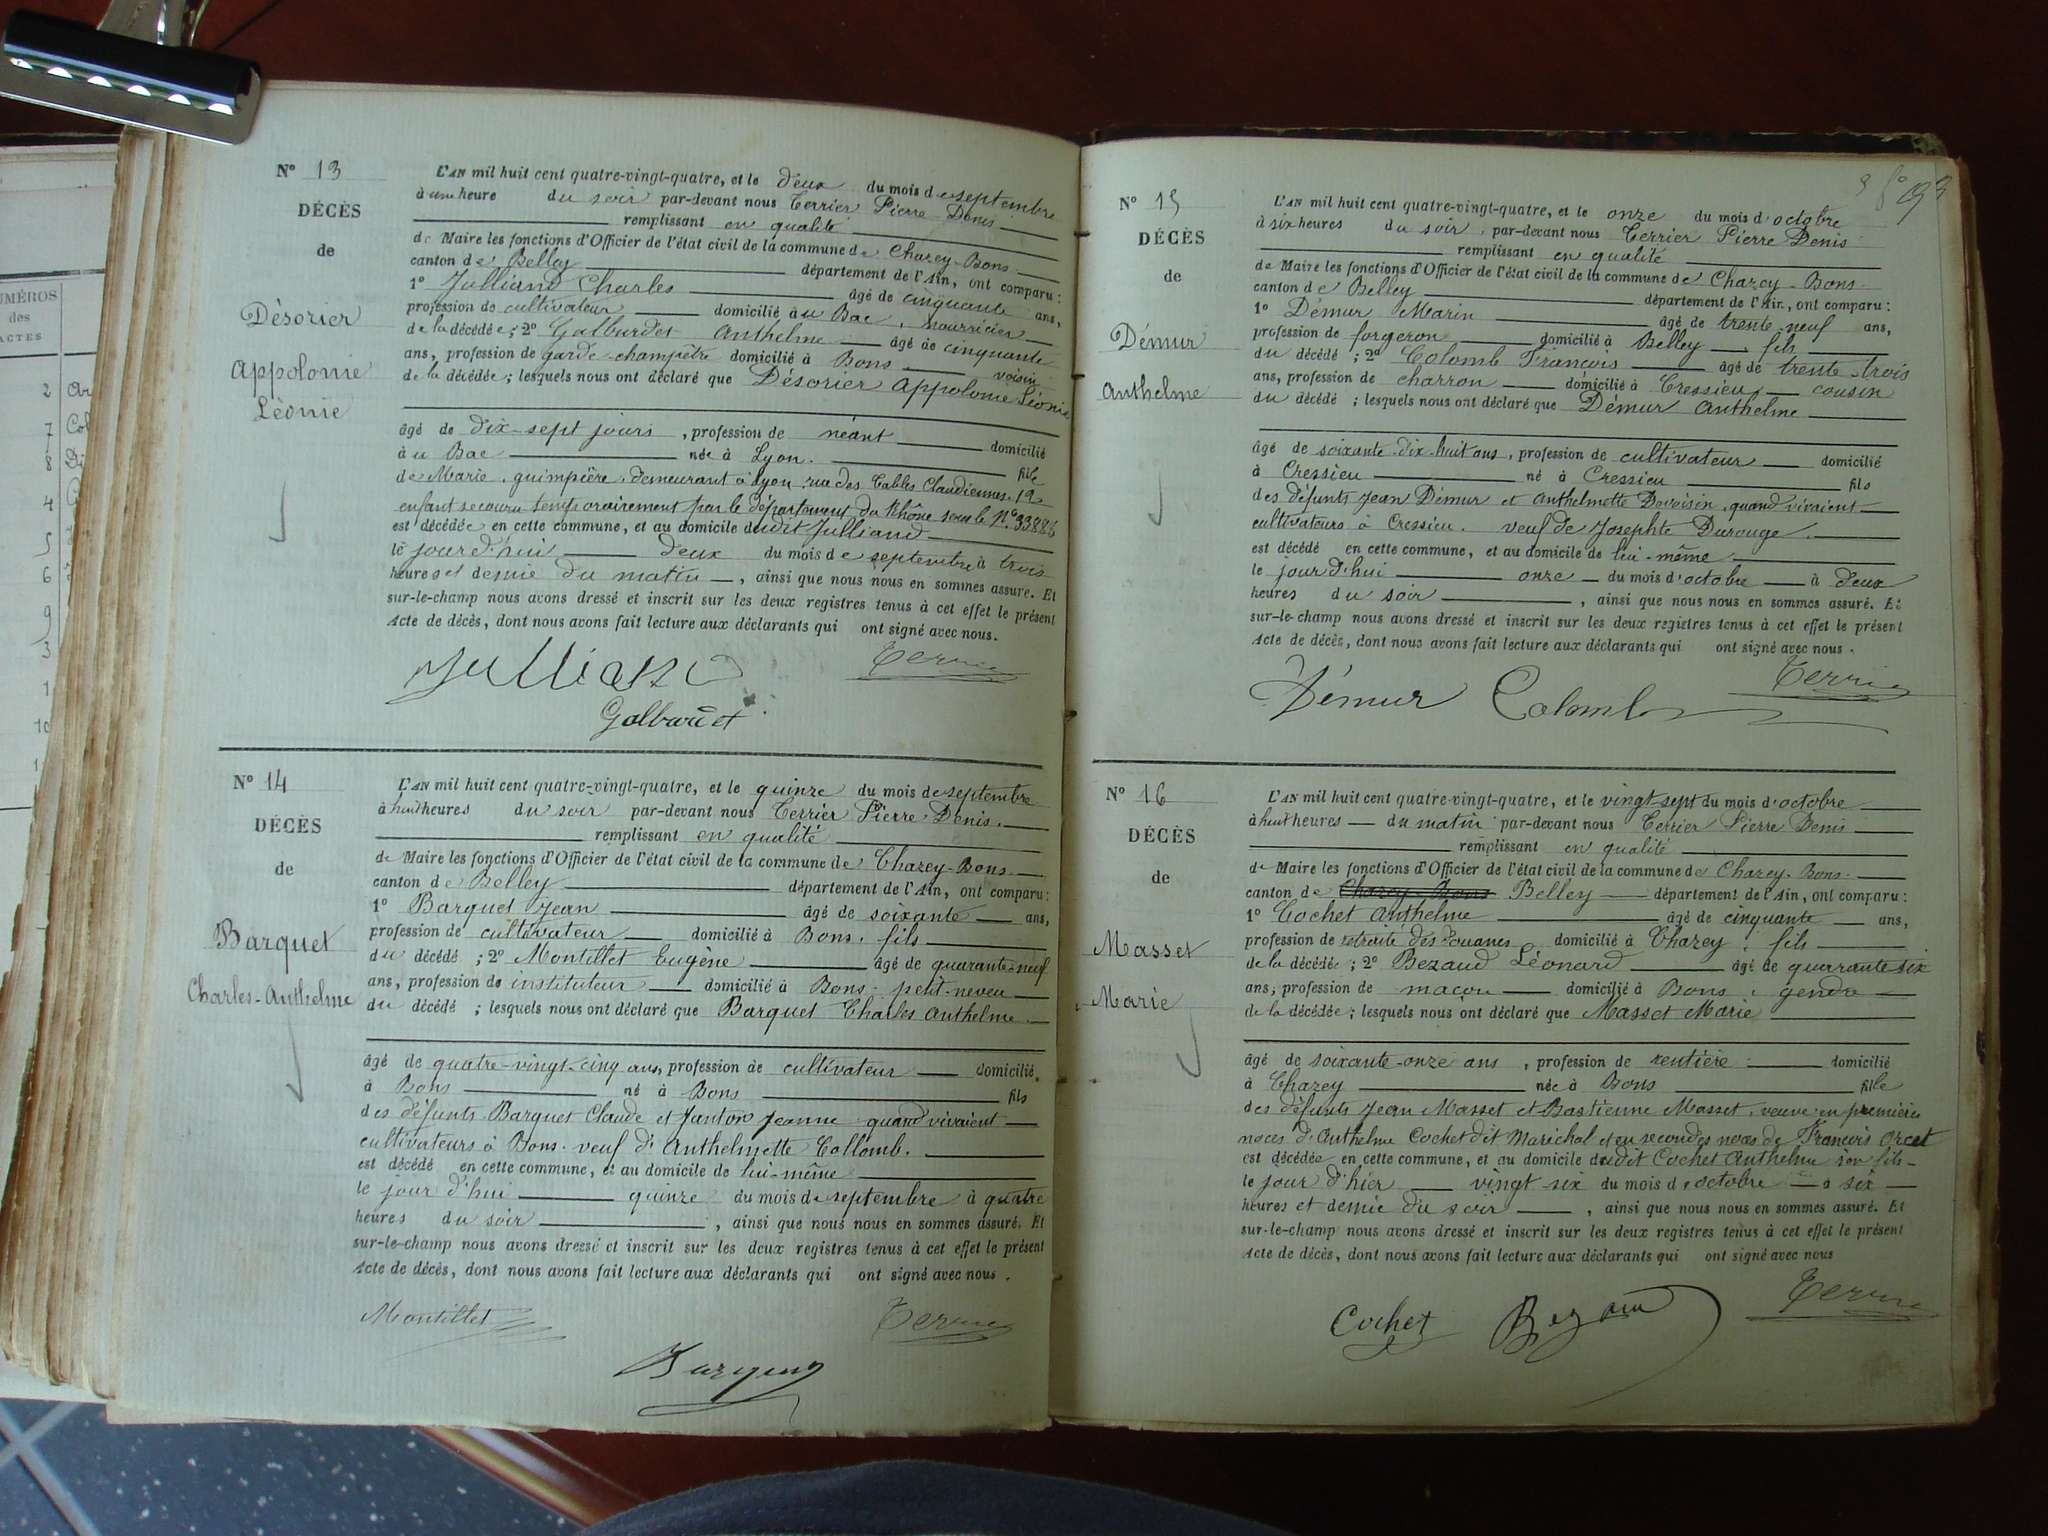 UMÉROS
des
ACTES
2
7
8
4
5
6
9
3
1
10
N° 13
DÉCÈS
de
Désorier
Appolonie
Léonie
L'AN mil huit cent quatre-vingt-quatre, et le deux du mois de septembre
à une heure du soir par-devant nous Terrier Pierre Denis
remplissant en qualité
de Maire les fonctions d'Officier de l'état civil de la commune de Chazey-Bons
canton de Belley département de l'Ain, ont comparu :
1° Julliand Charles âgé de cinquante ans,
profession de cultivateur domicilié à u Bac, nourricier
de la décédée ; 2° Galburdet Anthelme âgé de cinquante
ans, profession de garde-champêtre domicilié à Bons voisin
de la décédée ; lesquels nous ont déclaré que Désorier Appolonie Léonie
âgé de dix-sept jours, profession de néant domicilié
à u Bac née à Lyon. fille
de Marie, guimpière, demeurant à Lyon rue des Tables Claudiennes, 12
enfant secouru temporairement par le département du Rhône sous le N°
est décédée en cette commune, et au domicile dudit Julliand
le jour d'hui deux du mois de septembre à trois
heures et demie du matin, ainsi que nous nous en sommes assuré. Et
sur-le-champ nous avons dressé et inscrit sur les deux registres tenus à cet effet le présent
acte de décès, dont nous avons fait lecture aux déclarants qui ont signé avec nous.
Julliand
Terrier
Galburdet
N° 14
DÉCÈS
de
Barquet
Charles-Anthelme
L'AN mil huit cent quatre-vingt-quatre, et le quinze du mois de septembre
à huit heures du soir par-devant nous Terrier Pierre Denis.
remplissant en qualité
de Maire les fonctions d'Officier de l'état civil de la commune de Chazey-Bons
canton de Belley département de l'Ain, ont comparu :
1° Barquet Jean âgé de soixante ans,
profession de cultivateur domicilié à Bons, fils
du décédé ; 2° Montillet Eugène âgé de quarante-neuf
ans, profession de instituteur domicilié à Bons, petit-neveu
du décédé ; lesquels nous ont déclaré que Barquet Charles Anthelme
âgé de quatre-vingt-cinq ans, profession de cultivateur domicilié
à Bons né à Bons fils
des défunts Barquet Claude et Janton Jeanne quand vivaient
cultivateurs à Bons. veuf d'Anthelmette Collomb.
est décédé en cette commune, et au domicile de lui-même
le jour d'hui quinze du mois de septembre à quatre
heures du soir, ainsi que nous nous en sommes assuré. Et
sur-le-champ nous avons dressé et inscrit sur les deux registres tenus à cet effet le présent
acte de décès, dont nous avons fait lecture aux déclarants qui ont signé avec nous.
Montillet
Terrier
Barquet
N° 15
DÉCÈS
de
Démur
Anthelme
L'AN mil huit cent quatre-vingt-quatre, et le onze du mois d'octobre
à six heures du soir, par-devant nous Terrier Pierre Denis
remplissant en qualité
de Maire les fonctions d'Officier de l'état civil de la commune de Chazey-Bons
canton de Belley département de l'Ain, ont comparu :
1° Démur Marin âgé de trente-neuf ans,
profession de forgeron domicilié à Belley, fils
du décédé ; 2° Colomb François âgé de trente-trois
ans, profession de charron domicilié à Cressieu, cousin
du décédé ; lesquels nous ont déclaré que Démur Anthelme
âgé de soixante-dix-huit ans, profession de cultivateur domicilié
à Cressieu né à Cressieu fils
des défunts Jean Démur et Anthelmette Devoisin, quand vivaient
cultivateurs à Cressieu. veuf de Josephte Durouge.
est décédé en cette commune, et au domicile de lui-même
le jour d'hui onze du mois d'octobre à deux
heures du soir, ainsi que nous nous en sommes assuré. Et
sur-le-champ nous avons dressé et inscrit sur les deux registres tenus à cet effet le présent
acte de décès, dont nous avons fait lecture aux déclarants qui ont signé avec nous.
Terrier
Démur Colomb
N° 16
DÉCÈS
de
Masset
Marie
L'AN mil huit cent quatre-vingt-quatre, et le vingt-sept du mois d'octobre
à huit heures du matin par-devant nous Terrier Pierre Denis
remplissant en qualité
de Maire les fonctions d'Officier de l'état civil de la commune de Chazey-Bons
canton de Chazey-Bons Belley département de l'Ain, ont comparu :
1° Cochet Anthelme âgé de cinquante ans,
profession de retraité des Douanes domicilié à Chazey, fils
de la décédée ; 2° Bezaud Léonard âgé de quarante six
ans, profession de maçon domicilié à Bons, gendre
de la décédée ; lesquels nous ont déclaré que Masset Marie
âgé de soixante-onze ans, profession de rentière domicilié
à Chazey née à Bons fille
des défunts Jean Masset et Bastienne Masset, veuve en premières
noces d'Anthelme Cochet dit Maréchal et en secondes noces de François Orcet
est décédée en cette commune, et au domicile dudit Cochet Anthelme son fils
le jour d'hier vingt-six du mois d'octobre à six
heures et demie du soir, ainsi que nous nous en sommes assuré. Et
sur-le-champ nous avons dressé et inscrit sur les deux registres tenus à cet effet le présent
acte de décès, dont nous avons fait lecture aux déclarants qui ont signé avec nous
Terrier
Cochet Bezaud